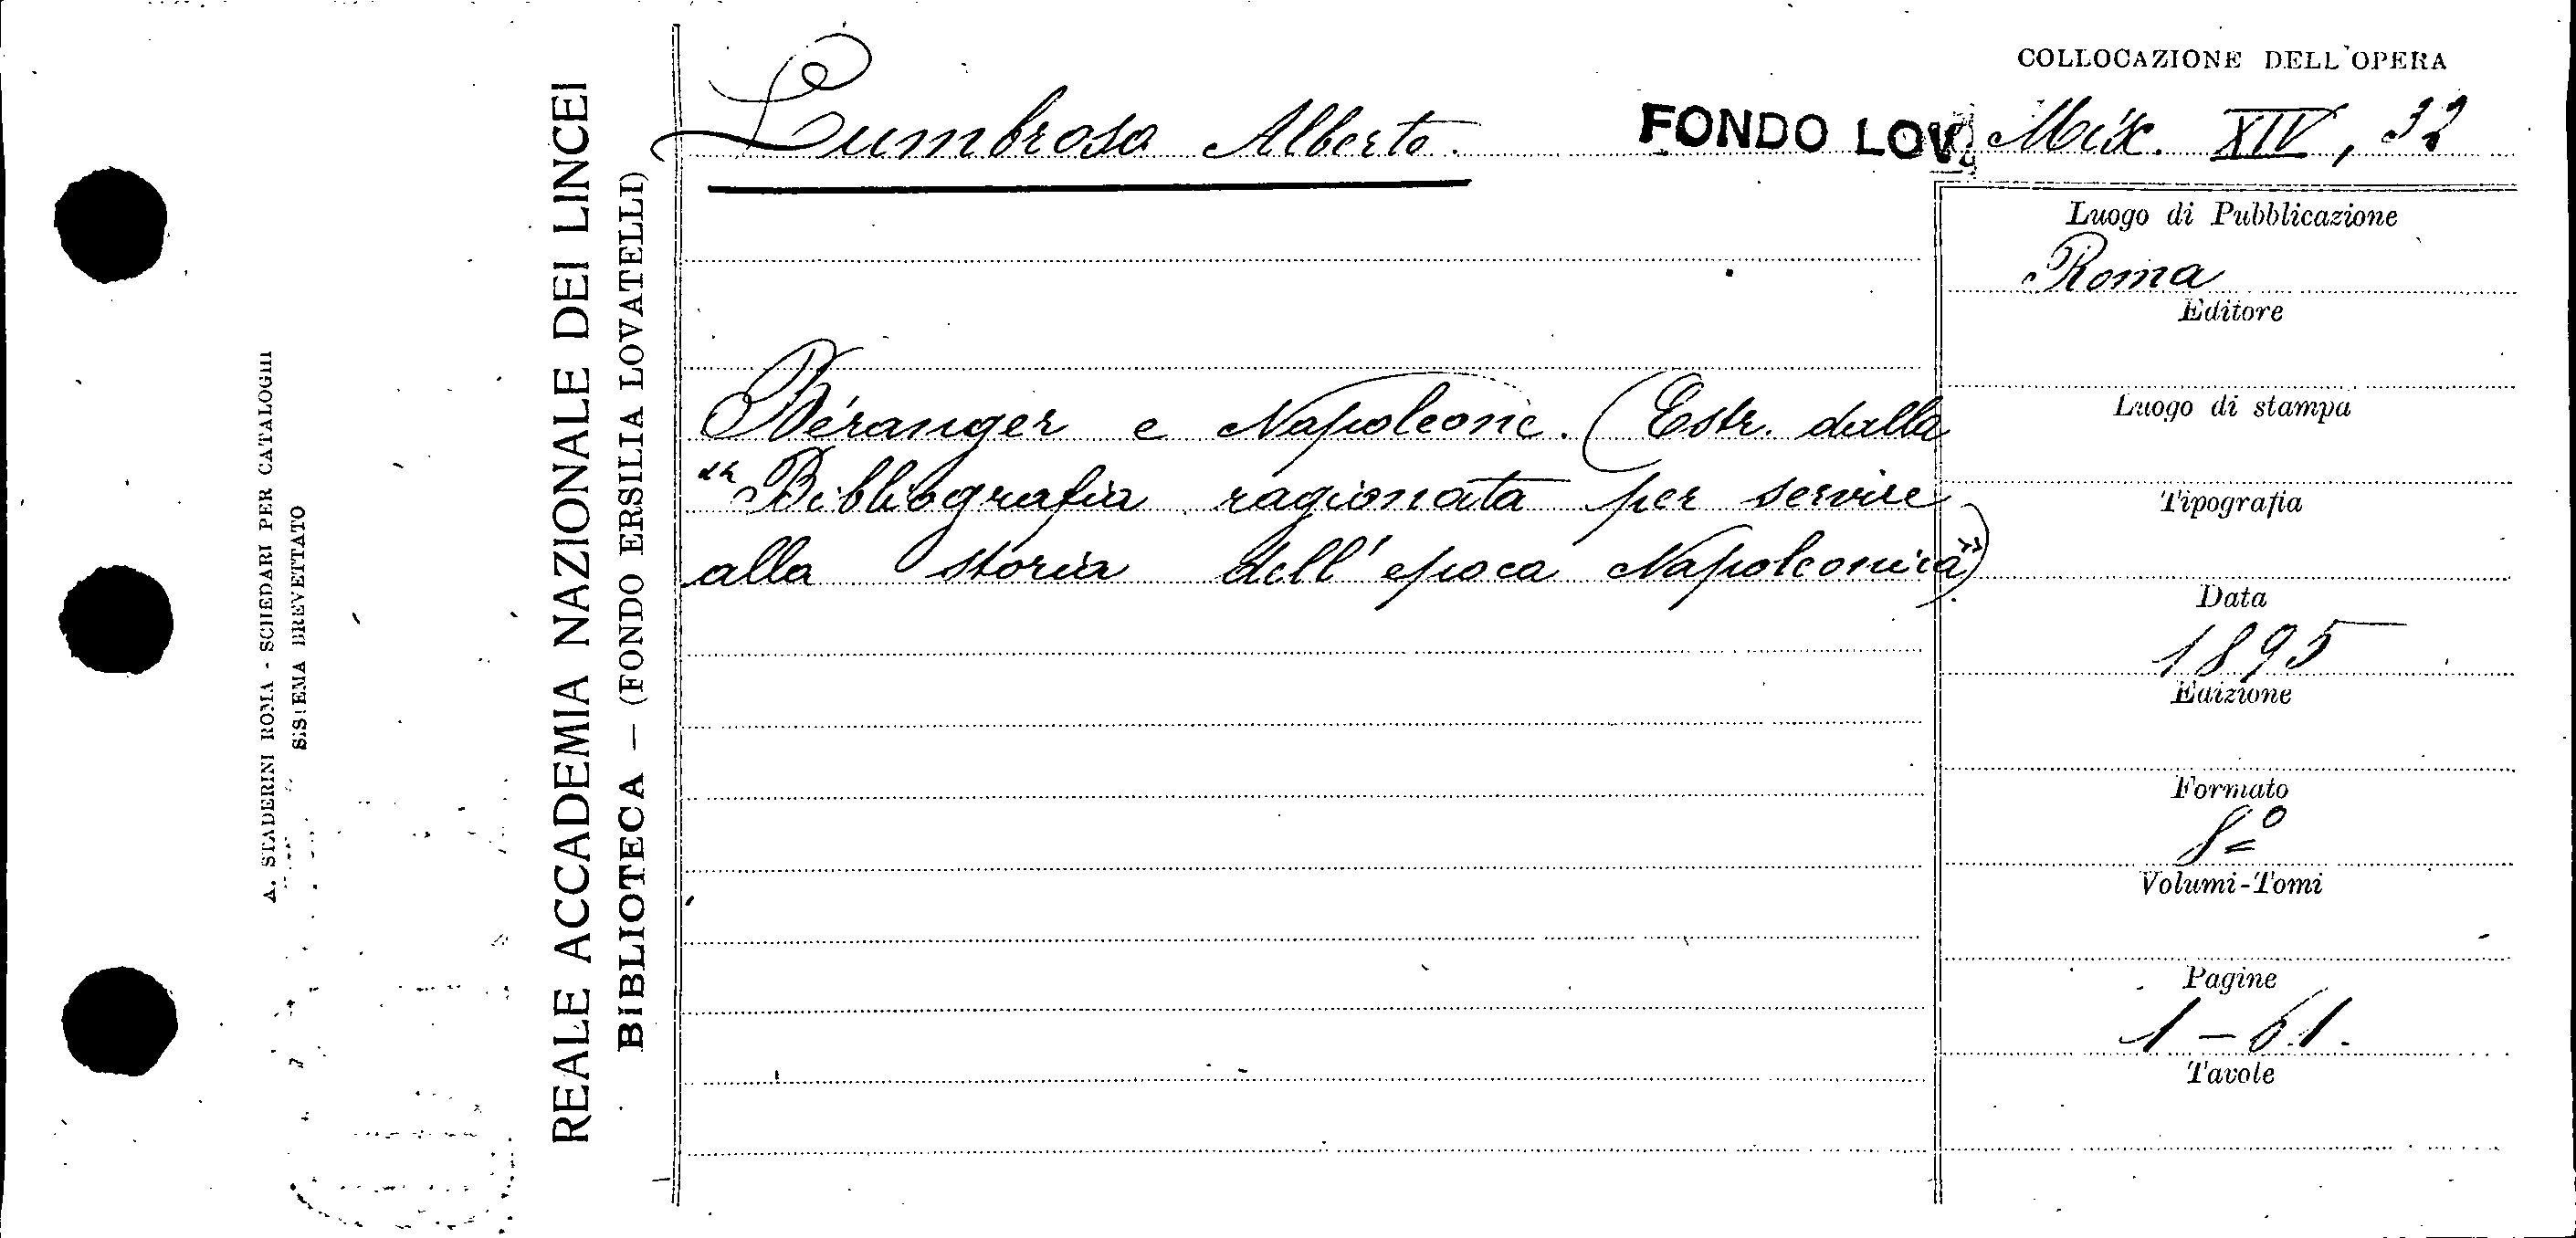 A. STADERINI ROMA - SCHEDARI PER CATALOGHI
SISTEMA BREVETTATO
REALE ACCADEMIA NAZIONALE DEI LINCEI
BIBLIOTECA — (FONDO ERSILIA LOVATELLI)
COLLOCAZIONE DELL'OPERA
Lumbroso Alberto. FONDO LOV. XIV, 32
Béranger e Napoleone. (Estr. dalla
"Bibliografia ragionata per servire
alla storia dell'epoca Napoleonica")
Luogo di Pubblicazione
Roma
Editore
Luogo di stampa
Tipografia
Data
1895
Edizione
Formato
8º
Volumi-Tomi
Pagine
1 - 61.
Tavole